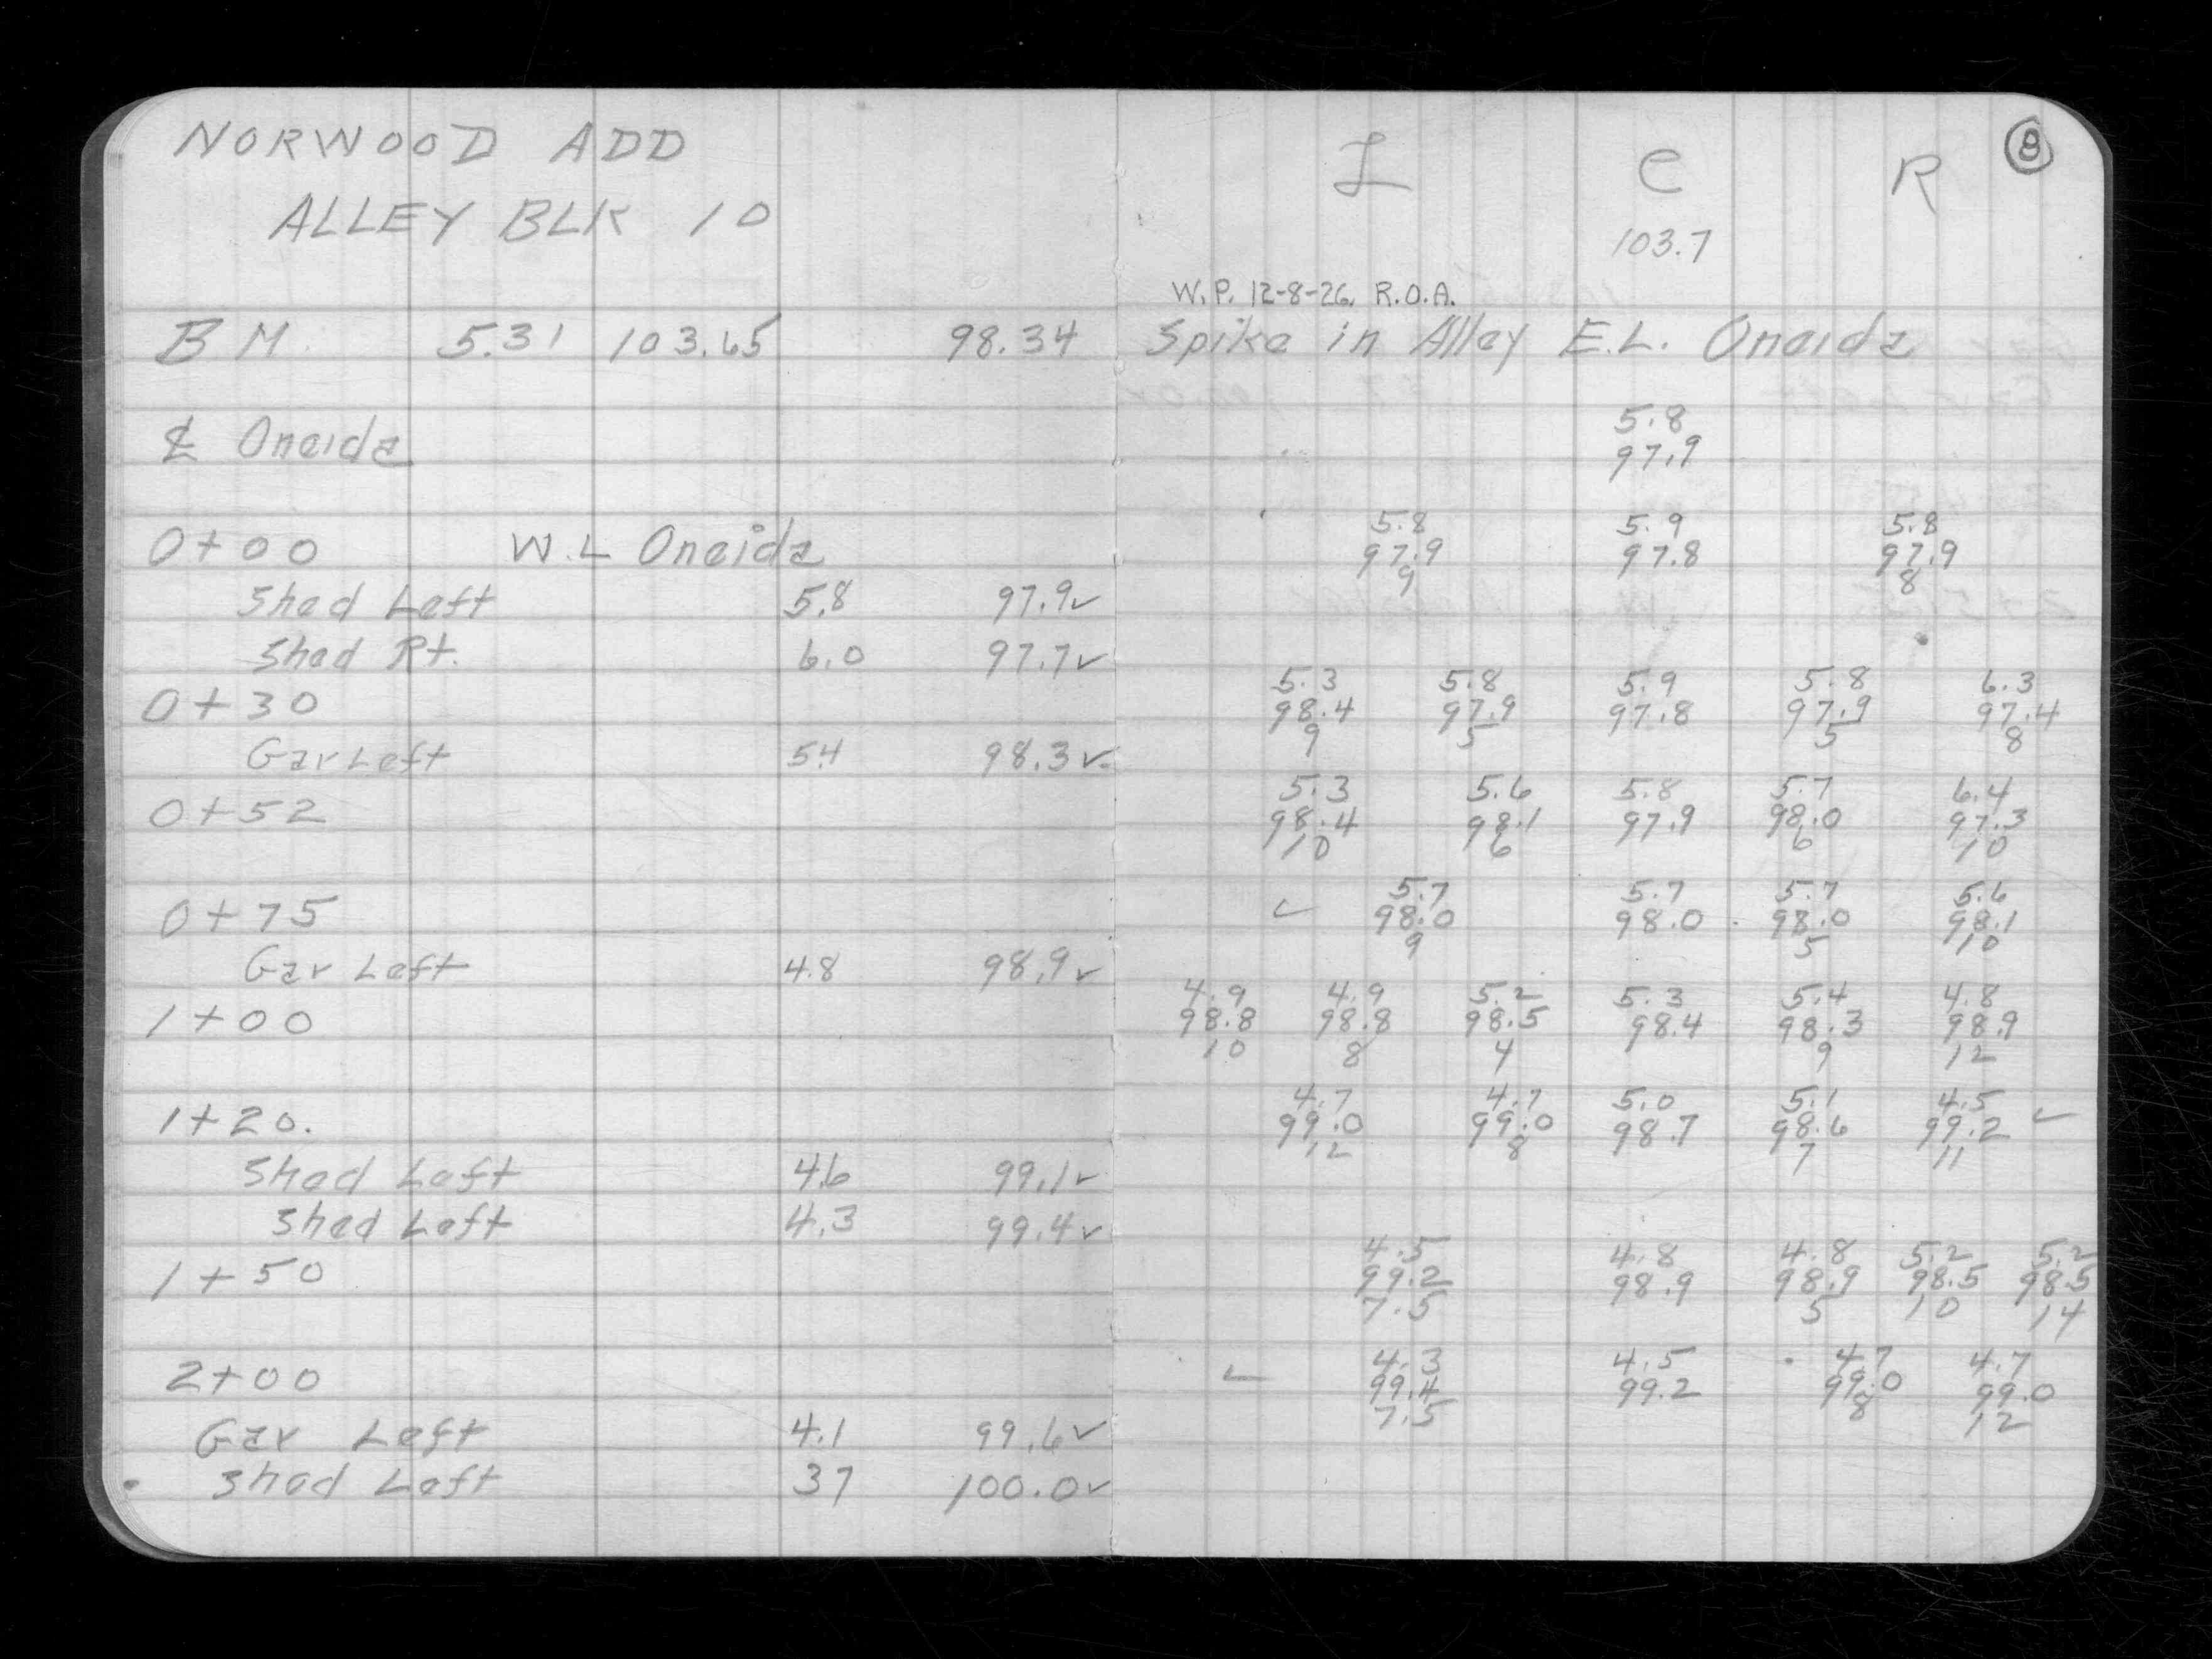 NORWOOD ADD
ALLEY BLK 10
BM 5.31 103.65 98.34
℄ Oneida
0+00 W.L Oneida
Shed Left 5.8 97.9✓
Shed Rt. 6.0 97.7✓
0+30
Gar Left 5.4 98.3✓
0+52
0+75
Gar Left 4.8 98.9✓
1+00
1+20.
Shed Left 4.6 99.1✓
Shed Left 4.3 99.4✓
1+50
2+00
Gar Left 4.1 99.6✓
Shed Left 37 100.0✓
8
L C R
103.7
W.P. 12-8-26, R.O.A.
Spike in Alley E.L. Oneida
5.8
97.9
5.8 5.9 5.8
97.9 97.8 97.9
9 8
5.3 5.8 5.9 5.8 6.3
98.4 97.9 97.8 97.9 97.4
9 5 5 8
5.3 5.6 5.8 5.7 6.4
98.4 98.1 97.9 98.0 97.3
10 6 6 10
5.7 5.7 5.7 5.6
✓ 98.0 98.0 98.0 98.1
9 5 10
4.9 4.9 5.2 5.3 5.4 4.8
98.8 98.8 98.5 98.4 98.3 98.9
10 8 4 9 12
4.7 4.7 5.0 5.1 4.5
99.0 99.0 98.7 98.6 99.2 ✓
12 8 7 11
4.5 4.8 4.8 5.2 5.2
99.2 98.9 98.9 98.5 98.5
7.5 5 10 14
4.3 4.5 4.7 4.7
✓ 99.4 99.2 99.0 99.0
7.5 8 12